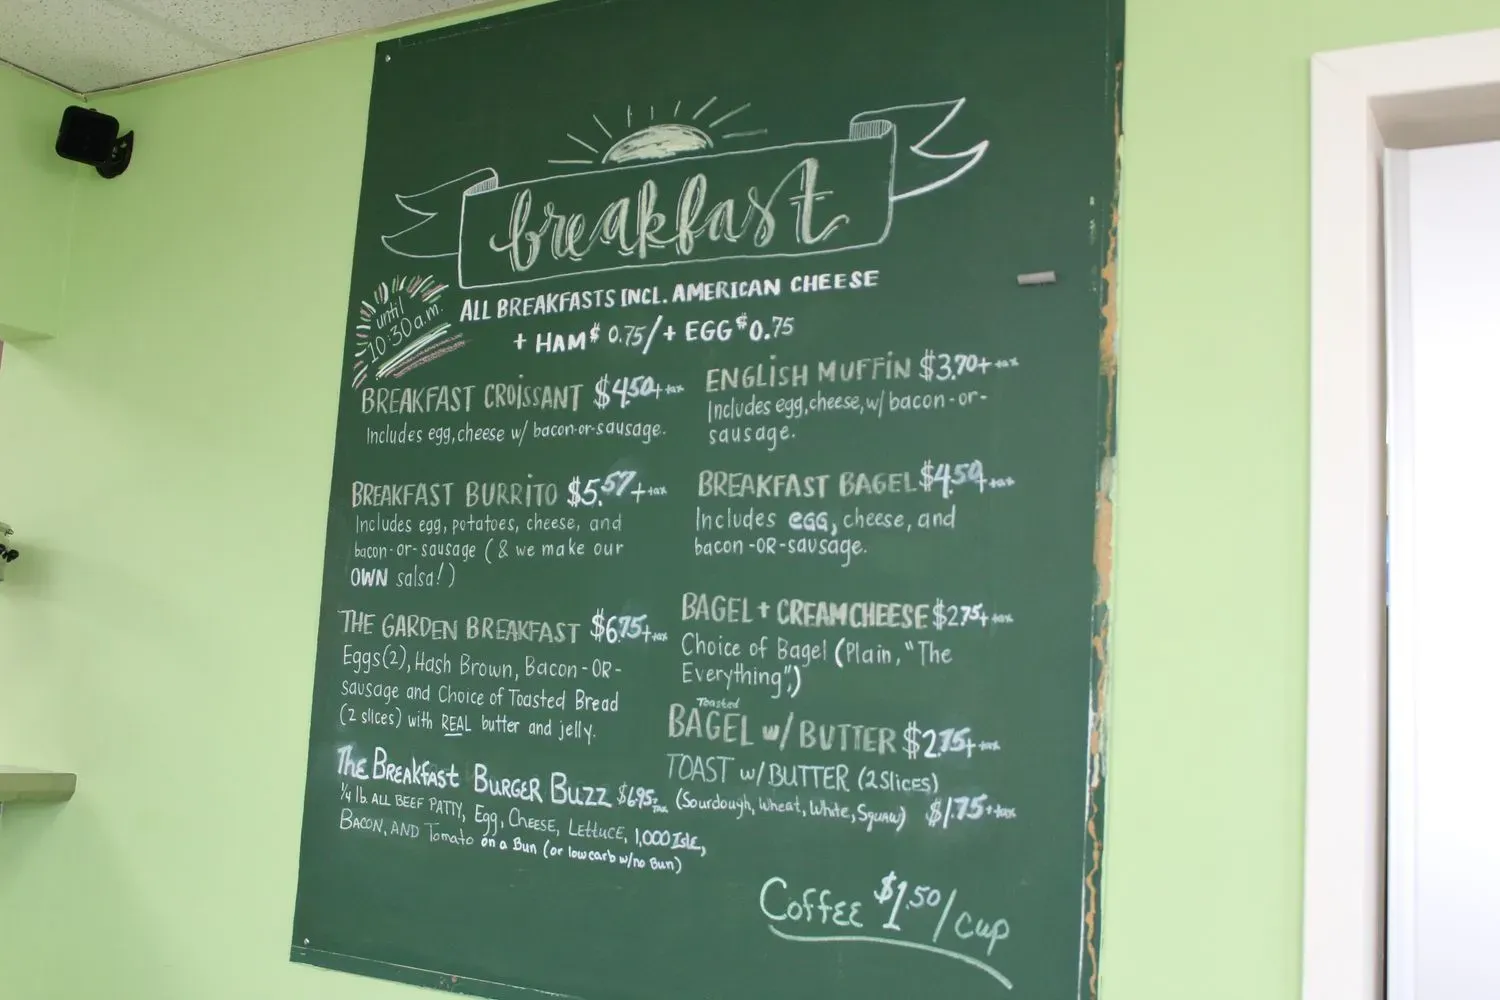 breakfast
until
10:30 a.m.
ALL BREAKFASTS INCL. AMERICAN CHEESE
+ HAM $0.75/+ EGG $0.75
BREAKFAST CROISSANT $4.50+tax
Includes egg, cheese w/ bacon-or-sausage.
BREAKFAST BURRITO $5.57+tax
Includes egg, potatoes, cheese, and
bacon-or-sausage (& we make our
OWN salsa!)
THE GARDEN BREAKFAST $6.75+tax
Eggs(2), Hash Brown, Bacon-OR-
Sausage and Choice of Toasted Bread
(2 slices) with REAL butter and jelly.
The Breakfast Burger Buzz $6.95+TAX
1/4 lb. ALL BEEF PATTY, Egg, Cheese, Lettuce, 1,000 Isle,
BACON, AND Tomato on a Bun (or low carb w/no Bun)
ENGLISH MUFFIN $3.70+tax
Includes egg, cheese, w/ bacon-or-
sausage.
BREAKFAST BAGEL $4.50+tax
Includes egg, cheese, and
bacon-OR-sausage.
BAGEL + CREAMCHEESE $2.75+tax
Choice of Bagel (Plain, "The
Everything")
Toasted
BAGEL w/ BUTTER $2.75+tax
TOAST w/ BUTTER (2 Slices)
(Sourdough, Wheat, White, Squaw) $1.75+tax
Coffee $1.50/cup